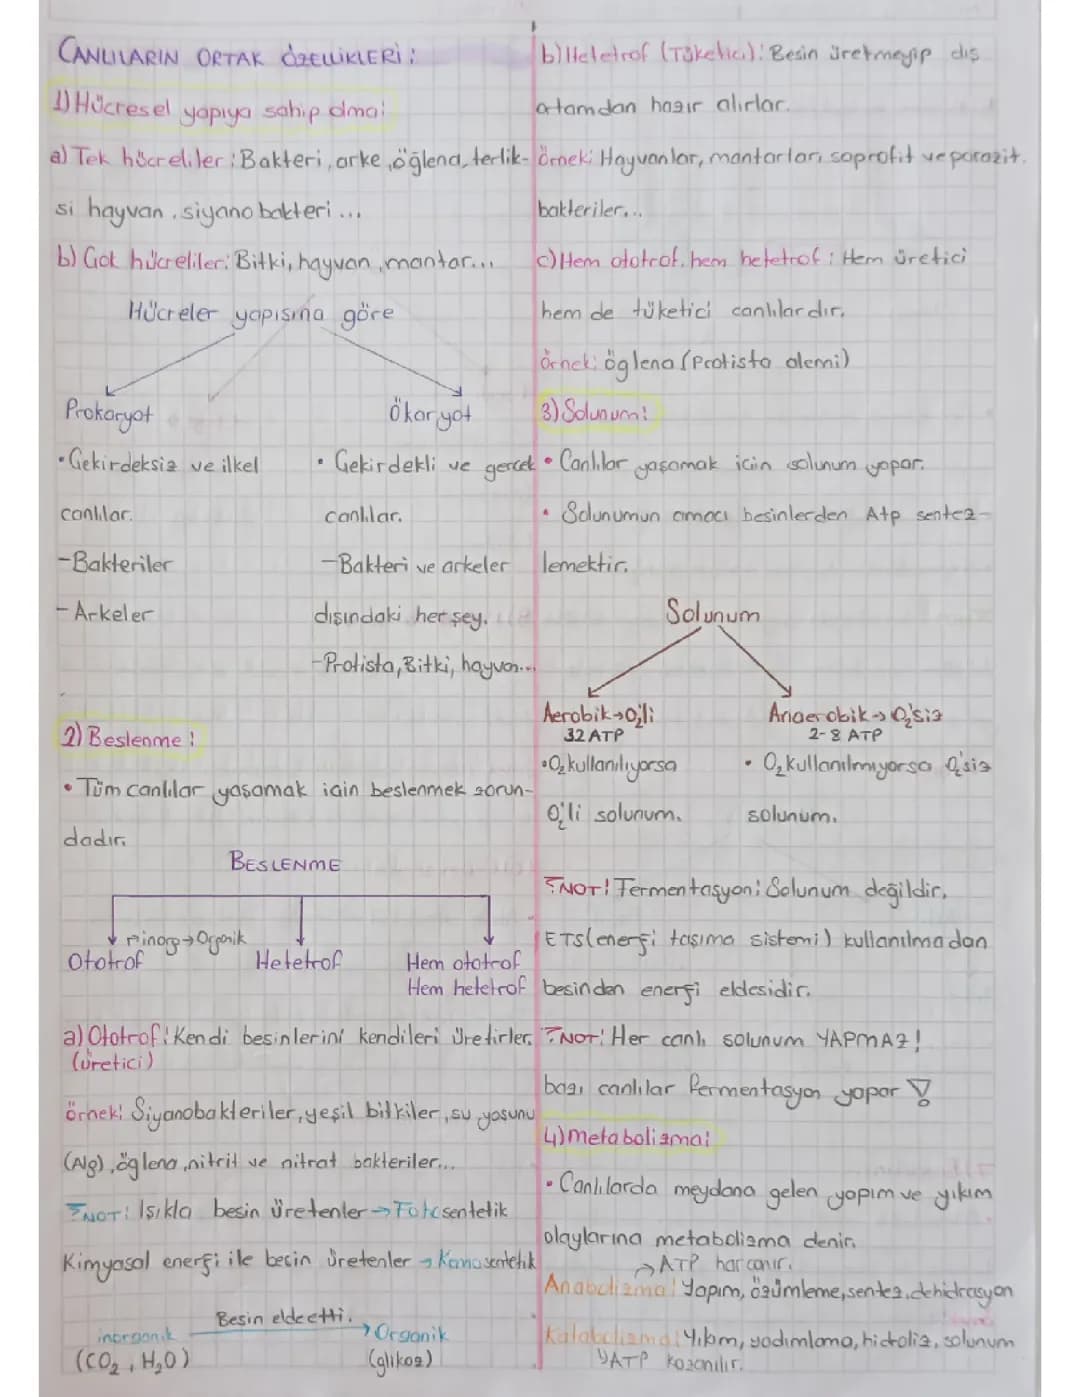 CANLILARIN ORTAK ÖZELLİKLERİ:
1) Hücresel yapıya sahip olma:
a) Tek hücreliler: Bakteri, arke, öğlena, terlik-
si hayvan, siyanobakteri...
b) Çok hücreliler: Bitki, hayvan, mantar...
Hücreler yapısına göre
Prokaryot
Ökaryot
• Çekirdeksiz ve ilkel
canlılar.
-Bakteriler
-Arkeler
• Çekirdekli ve gerçek
canlılar.
-Bakteri ve arkeler
dışındaki her şey.
-Protista, Bitki, hayvan...
2) Beslenme:
• Tüm canlılar yaşamak için beslenmek zorun-
dadır.
BESLENME
inorg→Organik
Ototrof
Hetetrof
Hem ototrof
Hem hetetrof
a) Ototrof: Kendi besinlerini kendileri üretirler.
(üretici)
örnek: Siyanobakteriler, yeşil bitkiler, su yosunu
(Alg), öglena, nitrit ve nitrat bakteriler...
NOT: Işıkla besin üretenler → Fotosentetik
Kimyasal enerji ile besin üretenler → Kemosentetik
Besin elde etti.
inorganik → Organik
(CO₂, H₂O) (glikoz)
b) Heletrof (Tüketici): Besin üretmeyip dış
ortamdan hazır alırlar.
örnek: Hayvanlar, mantarlar, saprofit ve parazit
bakteriler...
c) Hem ototrof, hem hetetrof: Hem üretici
hem de tüketici canlılardır.
örnek: öglena (Protista alemi)
3) Solunum:
• Canlılar yaşamak için solunum yapar.
• Solunumun amacı besinlerden Atp sentez-
lemektir.
Solunum
Aerobik→O₂'li
32 ATP
• O₂ kullanılıyorsa
O₂'li solunum.
Anaerobik→O₂'siz
2-8 ATP
• O₂ kullanılmıyorsa O₂'siz
solunum.
NOT: Fermentasyon: Solunum değildir.
ETS (enerji taşıma sistemi) kullanılmadan
besinden enerji eldesidir.
NOT: Her canlı solunum YAPMAZ!
bazı canlılar fermentasyon yapar!
4) metabolizma:
• Canlılarda meydana gelen yapım ve yıkım
olaylarına metabolizma denir.
→ATP harcanır.
Anabolizma: Yapım, özümleme, sentez, dehidrasyon
Katabolizma: Yıkım, yadımlama, hidroliz, solunum
ATP kazanılır.